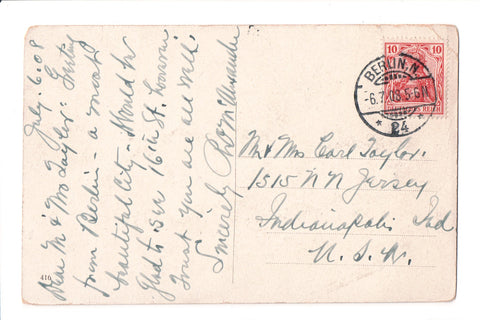 July. 6. 08
Dear Mr & Mrs Taylor: Greeting
from Berlin - a most
beautiful City - Would be
glad to see 16th St.
Trust you are all well.
Sincerely
416
10 10
BERLIN. N.
-6.7.08.5-6N
* 24 *
Mr & Mrs Carl Taylor.
1515 N N Jersey
Indianapolis Ind
U. S. A.